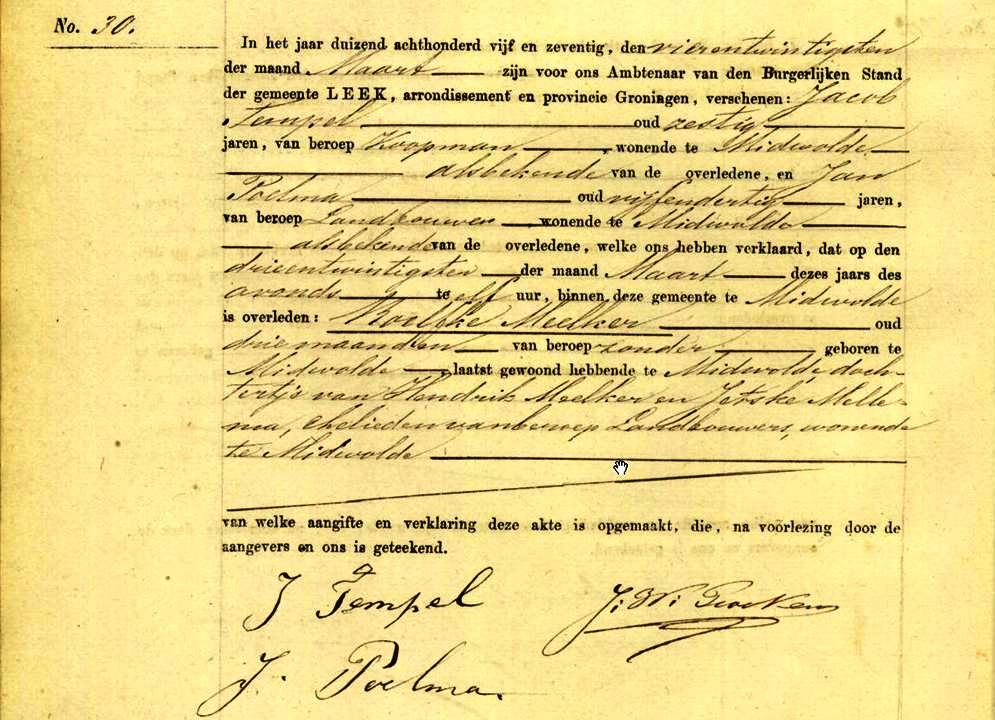 No. 30.
In het jaar duizend achthonderd vijf en zeventig, den vierentwintigsten
der maand Maart zijn voor ons Ambtenaar van den Burgerlijken Stand
der gemeente LEEK, arrondissement en provincie Groningen, verschenen: Jacob
Tempel oud zestig
jaren, van beroep Koopman, wonende te Midwolde
als bekende van de overledene, en Jan
Poelma oud vijfendertig jaren,
van beroep Landbouwer wonende te Midwolde
als bekende van de overledene, welke ons hebben verklaard, dat op den
drieentwintigsten der maand Maart dezes jaars des
avonds te elf uur, binnen deze gemeente te Midwolde
is overleden: Meelker oud
drie maanden van beroep zonder geboren te
Midwolde, laatst gewoond hebbende te Midwolde, doch-
tertje van Hendrik Meelker en Jetske Melle-
ma, echelieden van beroep Landbouwers, wonende
te Midwolde
van welke aangifte en verklaring deze akte is opgemaakt, die, na voorlezing door de
aangevers en ons is geteekend.
J Tempel
J. Poelma.